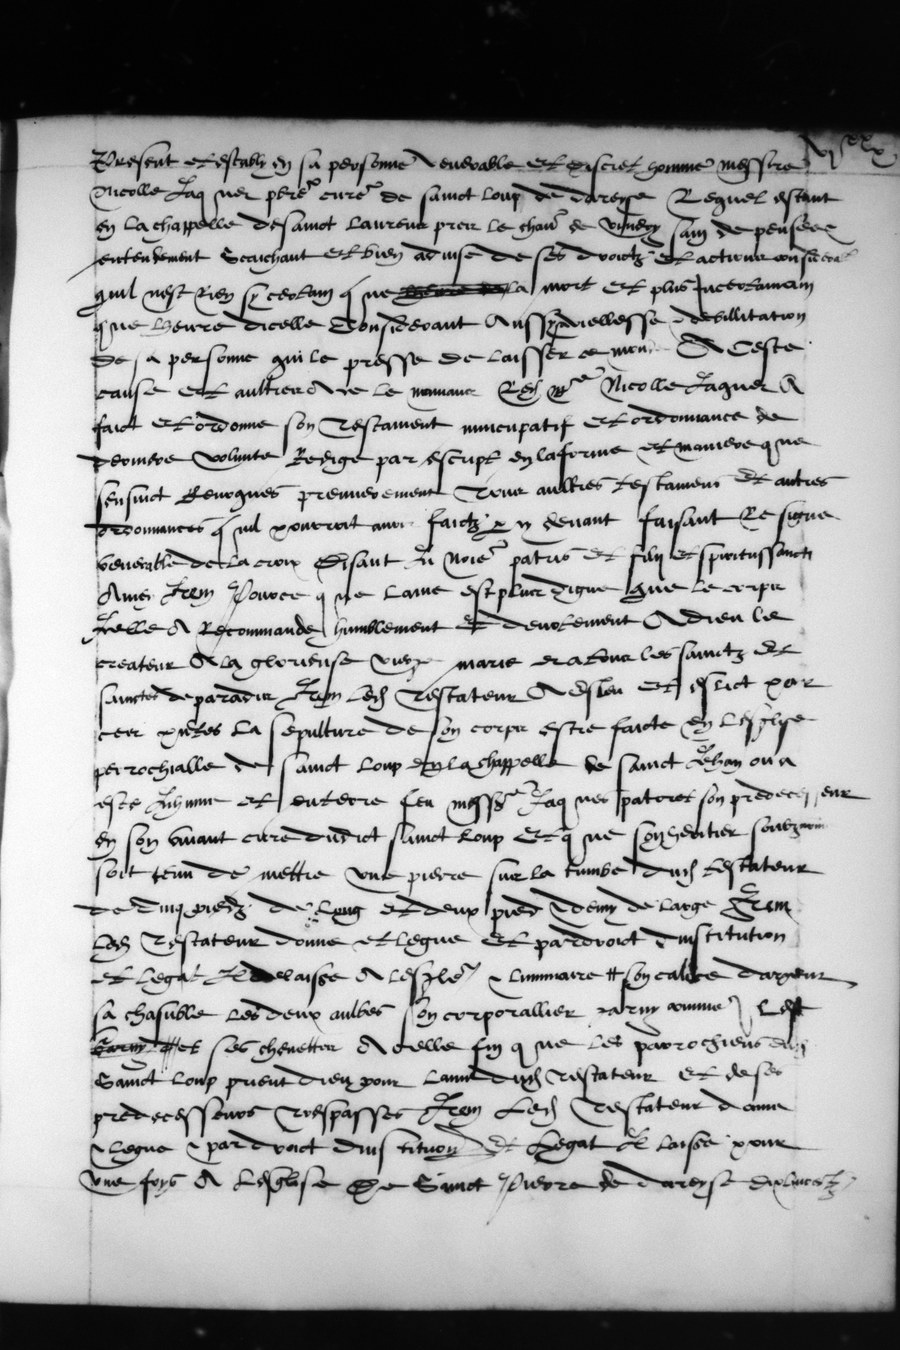 Present et estably en sa personne venerable et discret homme messire
Nicolle Jaquer pbre cure de sainct loup de dareyse Lequel estant
en la chappelle de sainct laurens pres le chau de sain de pensee
entendement Scaichant et bien advise de ses droictz et actions considerat
quil nest Rien sy certain que la mort et plus Incertain
que lheure dicelle Considerant Aussy vieillesse debillitation
de sa personne qui le presse de laisser ce monde A Ceste
cause et aultres Led mre Nicolle Jaquer A
faict et ordonne son Testament nuncupatif et ordonnance de
derniere volunte Redige par escript en la forme et maniere que
sensuict Revoques premierement Tous aultres testamens et autres
ordonnances quil pourroit avoir faictz cy devant faisant le signe
venerable de la croix Disant In noie patris et filij et spiritussancti
Amen Item Pource que lame est plus digne que le corps
Icelle A Recommande humblement et devotement A dieu le
createur A la glorieuse vierge marie et a tous les sainctz et
sainctes de paradis Item Led Testateur A esleu et eslict par
ces pntes la sepulture de son corps estre faicte en lesglise
perrochialle de sainct loup en la chappelle de sainct Jehan ou a
este Inhume et enterre feu messre Jaques patoret son predecesseur
en son vivant cure dudict sainct loup et que son heritier
soit tenu de mettre une pierre sur la tumbe dud testateur
de cinq piedz de long et deux piedz demy de large Item
Led Testateur donne et legue et par droict dinstitution
et legat et delaisse A lesglise luminaire son calice dargent
sa chasuble les deux aulbes son corporallier garny comme Il est
et ses chenettes A celle fin que les parrochiens dud
Sainct loup prient dieu pour lame dud Testateur et de ses
predecesseurs Trespasses Item Led Testateur donne
legue par droict dinstitution et legat et laisse pour
une foys A lesglise De Sainct Pierre de dareyse